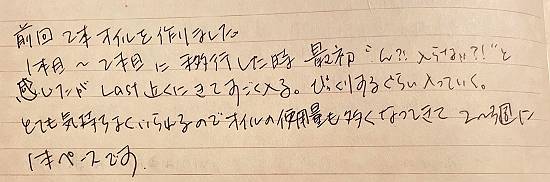 前回 2本オイルを作りました。
1本目〜2本目に移行した時 最初 "ん?! 入らない?!"と
感じたが Last近くにきてすごく入る。びっくりするぐらい入っていく。
とても気持ちよくいられるのでオイルの使用量も多くなってきて 2〜3週に
1本ペースです。